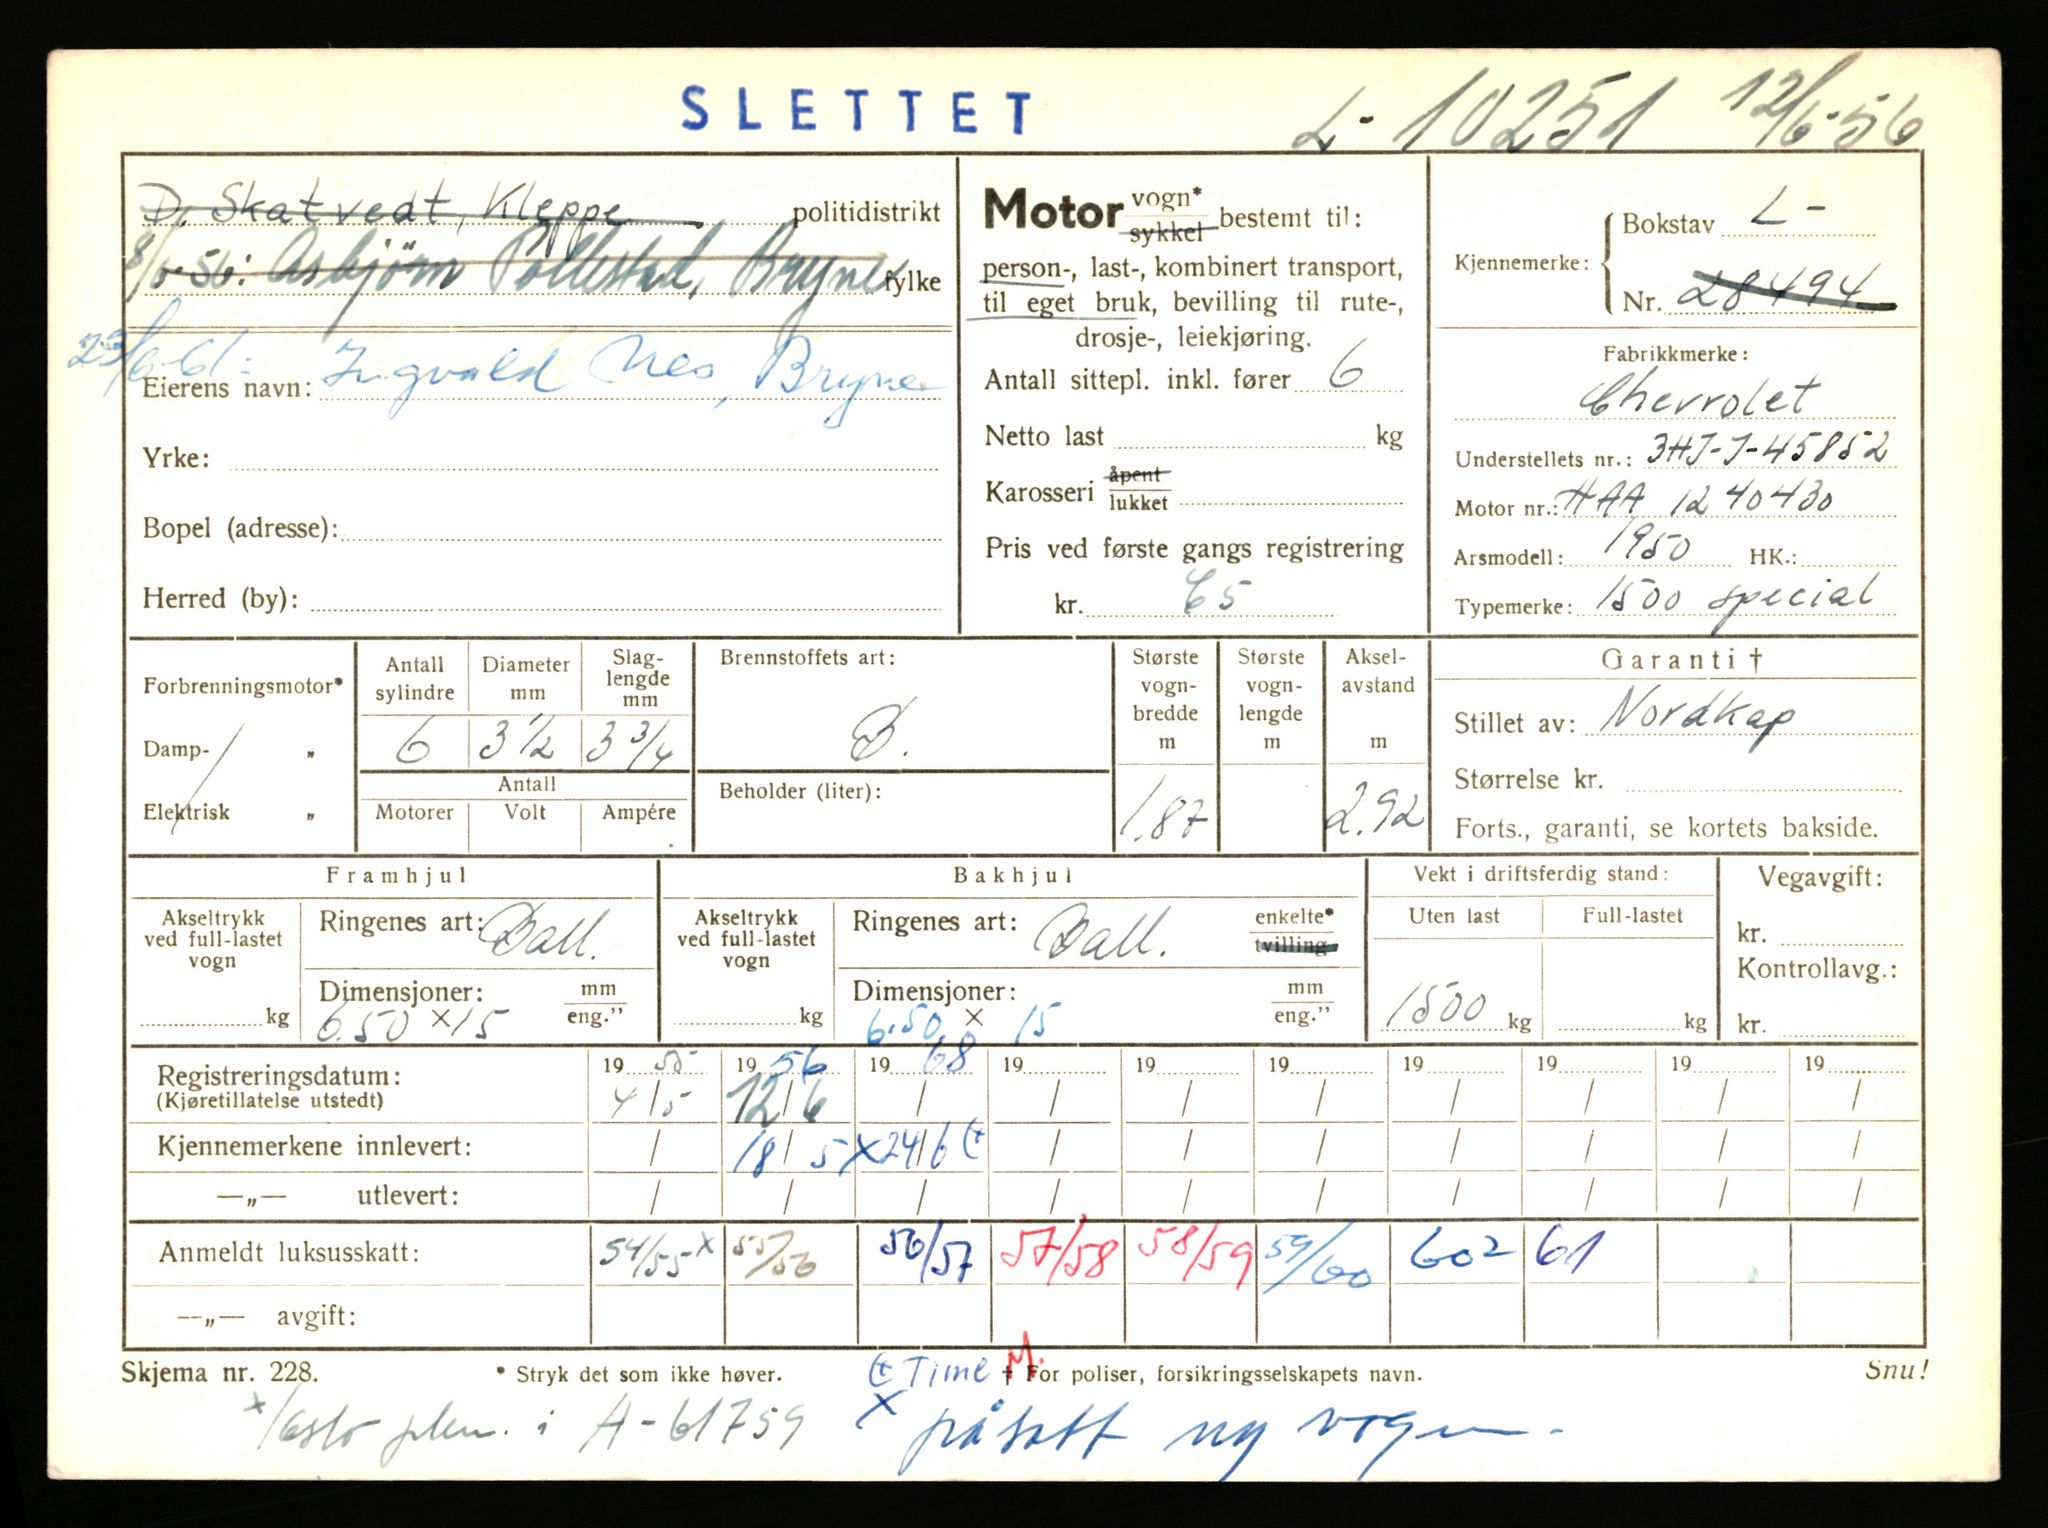 SLETTET
L-10251 12/6-56
D. Skatvedt, Kleppe politidistrikt
8/6-56: Asbjörn Pollestad, Bryne fylke
23/6-61: Ingvald Nes, Bryne
Eierens navn:
Yrke:
Bopel (adresse):
Herred (by):
Motor vogn* sykkel bestemt til:
person-, last-, kombinert transport,
til eget bruk, bevilling til rute-,
drosje-, leiekjøring.
Antall sittepl. inkl. fører 6
Netto last kg
Karosseri åpent lukket
Pris ved første gangs registrering
kr. 65
Kjennemerke: Bokstav L-
Nr. 28494
Fabrikkmerke:
Chevrolet
Understellets nr.: 3HJ-J-45852
Motor nr.: HAA 1240430
Arsmodell: 1950 HK.:
Typemerke: 1500 special
Forbrenningsmotor*
Damp- „
Elektrisk „
Antall sylindre
6
Diameter mm
3 1/2
Slag-lengde mm
3 3/4
Antall
Motorer Volt Ampére
Brennstoffets art:
B.
Beholder (liter):
Største vogn-bredde m
1.87
Største vogn-lengde m
Aksel-avstand m
2.92
Garanti †
Stillet av: Nordkap
Størrelse kr.
Forts., garanti, se kortets bakside.
Framhjul
Akseltrykk ved full-lastet vogn
kg
Ringenes art: Ball.
Dimensjoner: mm eng.”
6.50 x 15
Bakhjul
Akseltrykk ved full-lastet vogn
kg
Ringenes art: Ball. enkelte* tvilling
Dimensjoner: mm eng.”
6.50 x 15
Vekt i driftsferdig stand:
Uten last Full-lastet
1500 kg kg
Vegavgift:
kr.
Kontrollavg.:
kr.
19 55 19 56 19 68 19 19 19 19 19 19 19
Registreringsdatum: 4/5 12/6 / / / / / / / /
(Kjøretillatelse utstedt)
Kjennemerkene innlevert: / 18/5 x 24/6 (+ / / / / / / /
—„— utlevert: / / / / / / / / / /
Anmeldt luksusskatt: 54/55 x 55/56 56/57 57/58 58/59 59/60 602 61
—„— avgift:
Skjema nr. 228. * Stryk det som ikke høver. (+ Time M. † For poliser, forsikringsselskapets navn. Snu!
x/ i A-61759 x påsatt ny vogn.